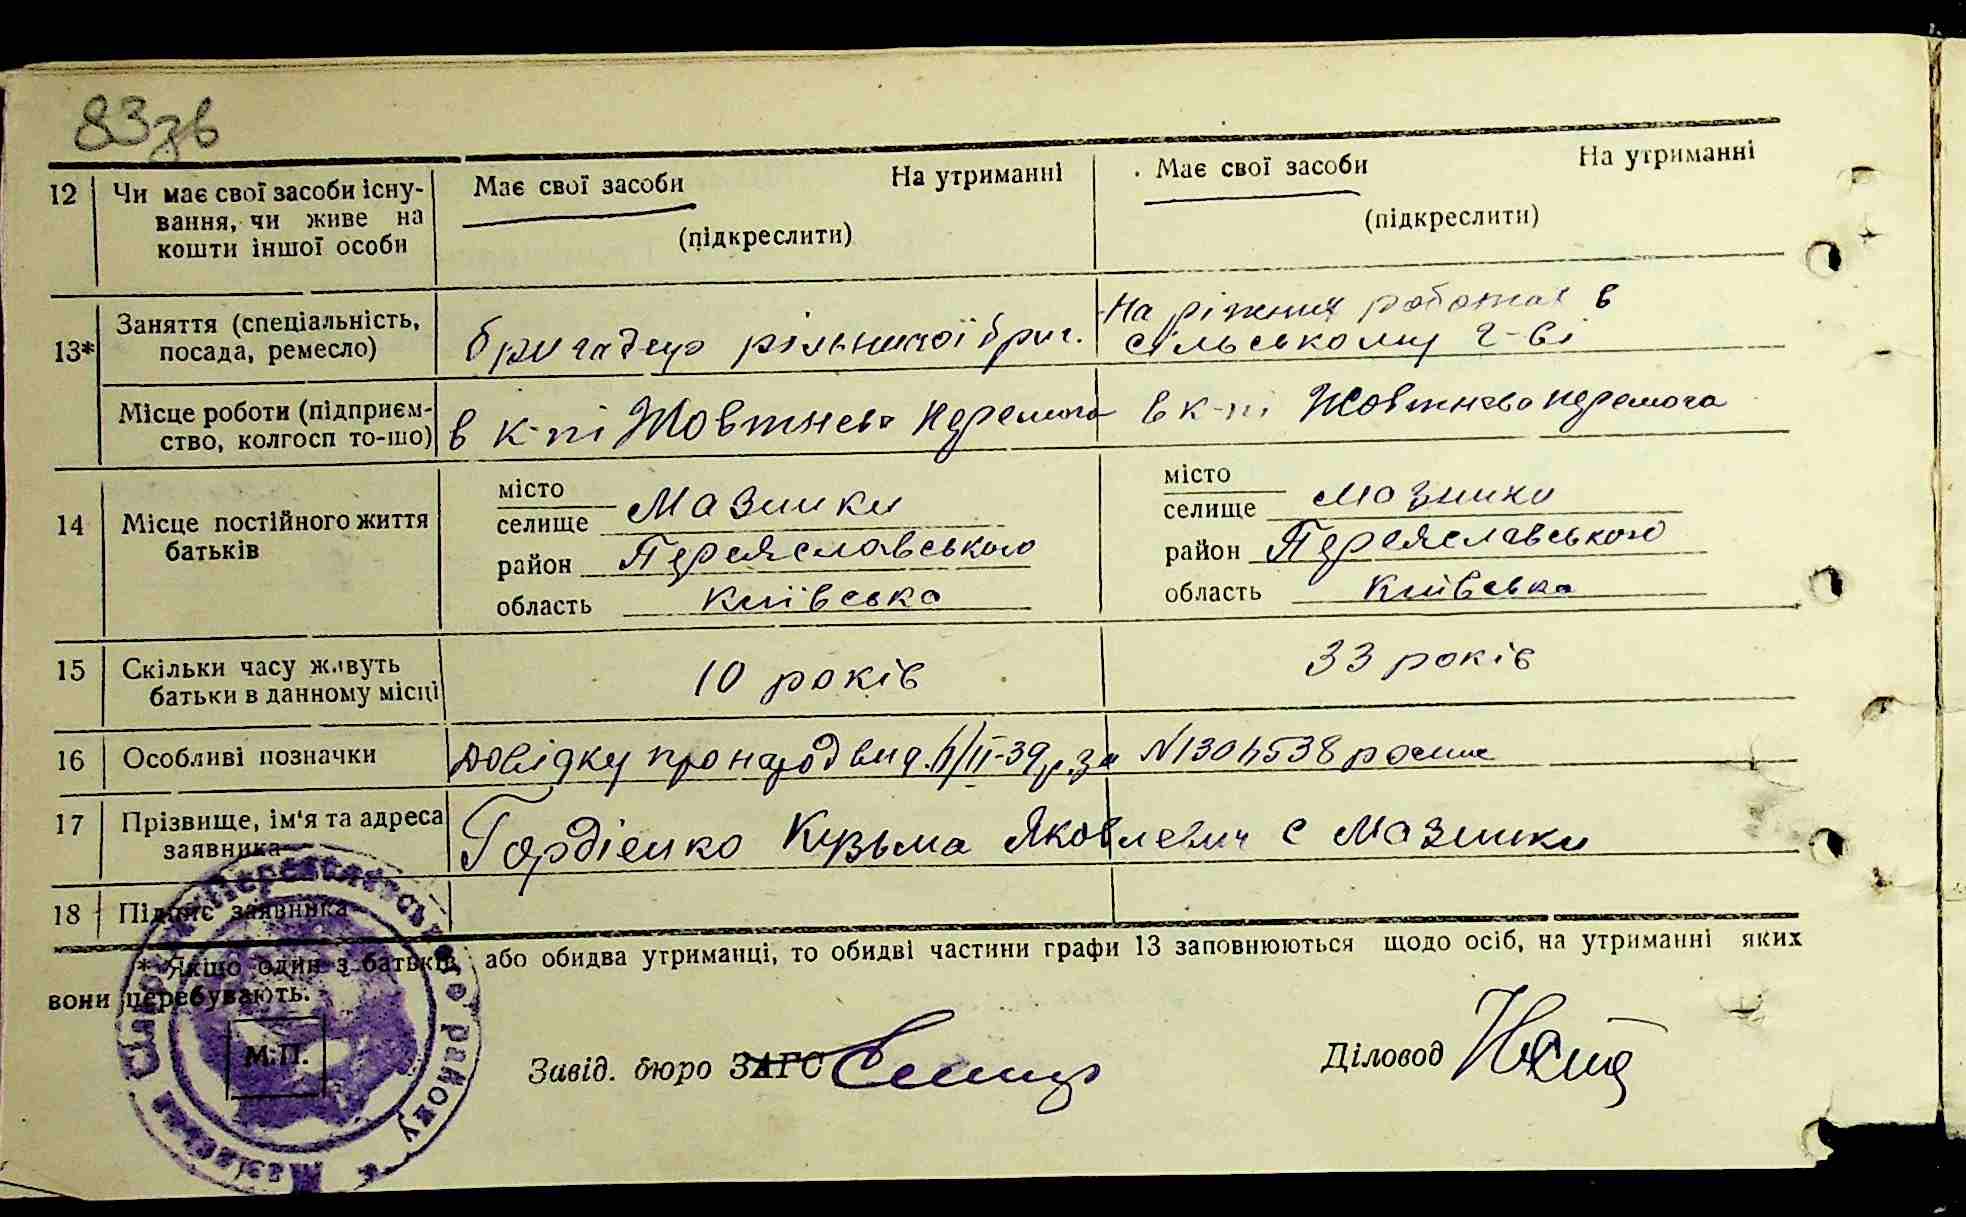 83зв
12 Чи має свої засоби існу- Має свої засоби На утриманні Має свої засоби На утриманні
вання, чи живе на
кошти іншої особи (підкреслити) (підкреслити)
13* Заняття (спеціальність, На ріжних роботах в
посада, ремесло) бригадир рільничої бриг. сільському г-ві
Місце роботи (підприєм- в к-пі Жовтнева перемога в к-пі Жовтнева перемога
ство, колгосп то-що)
14 Місце постійного життя місто місто
батьків селище Мазинки селище Мазинки
район Переяславського район Переяславського
область Київська область Київська
15 Скільки часу живуть 10 років 33 років
батьки в данному місці
16 Особливі позначки довідку про народ вид. /II-39р. за
17 Прізвище, ім'я та адреса Гордієнко Кузьма Яковлевич с Мазинки
заявника
18 Підпис заявника
* Якщо один з батьків, або обидва утриманці, то обидві частини графи 13 заповнюються щодо осіб, на утриманні яких
вони перебувають.
М.П.
Завід. бюро ЗАГС Діловод
Переяславського району